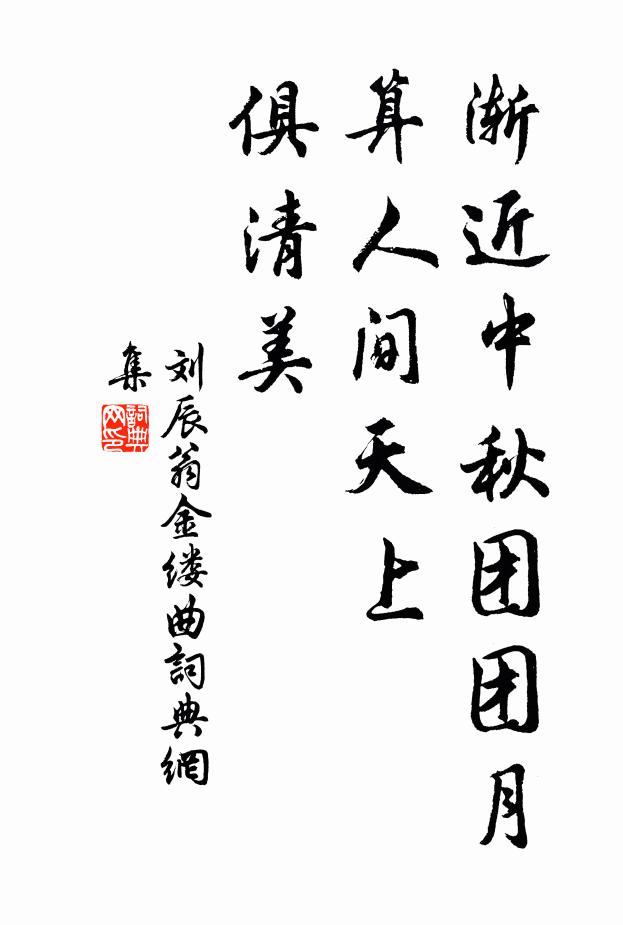 渐近中秋团团月
算人间天上
俱清美
刘辰翁金缕曲詞典網
集
詞典
网印